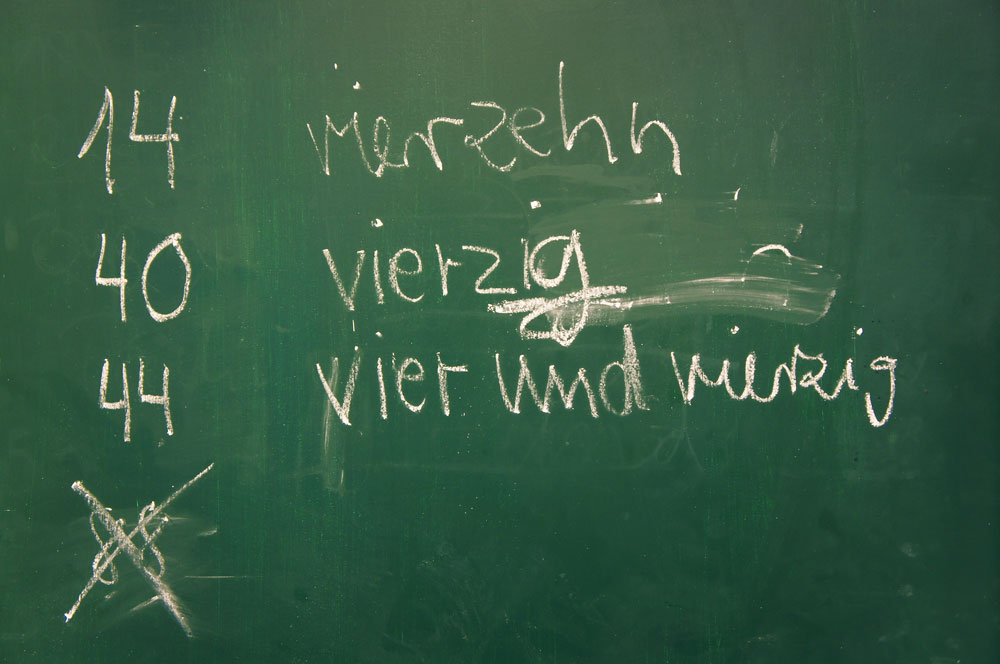 14 vierzehn
40 vierzig
44 vier und vierzig
88